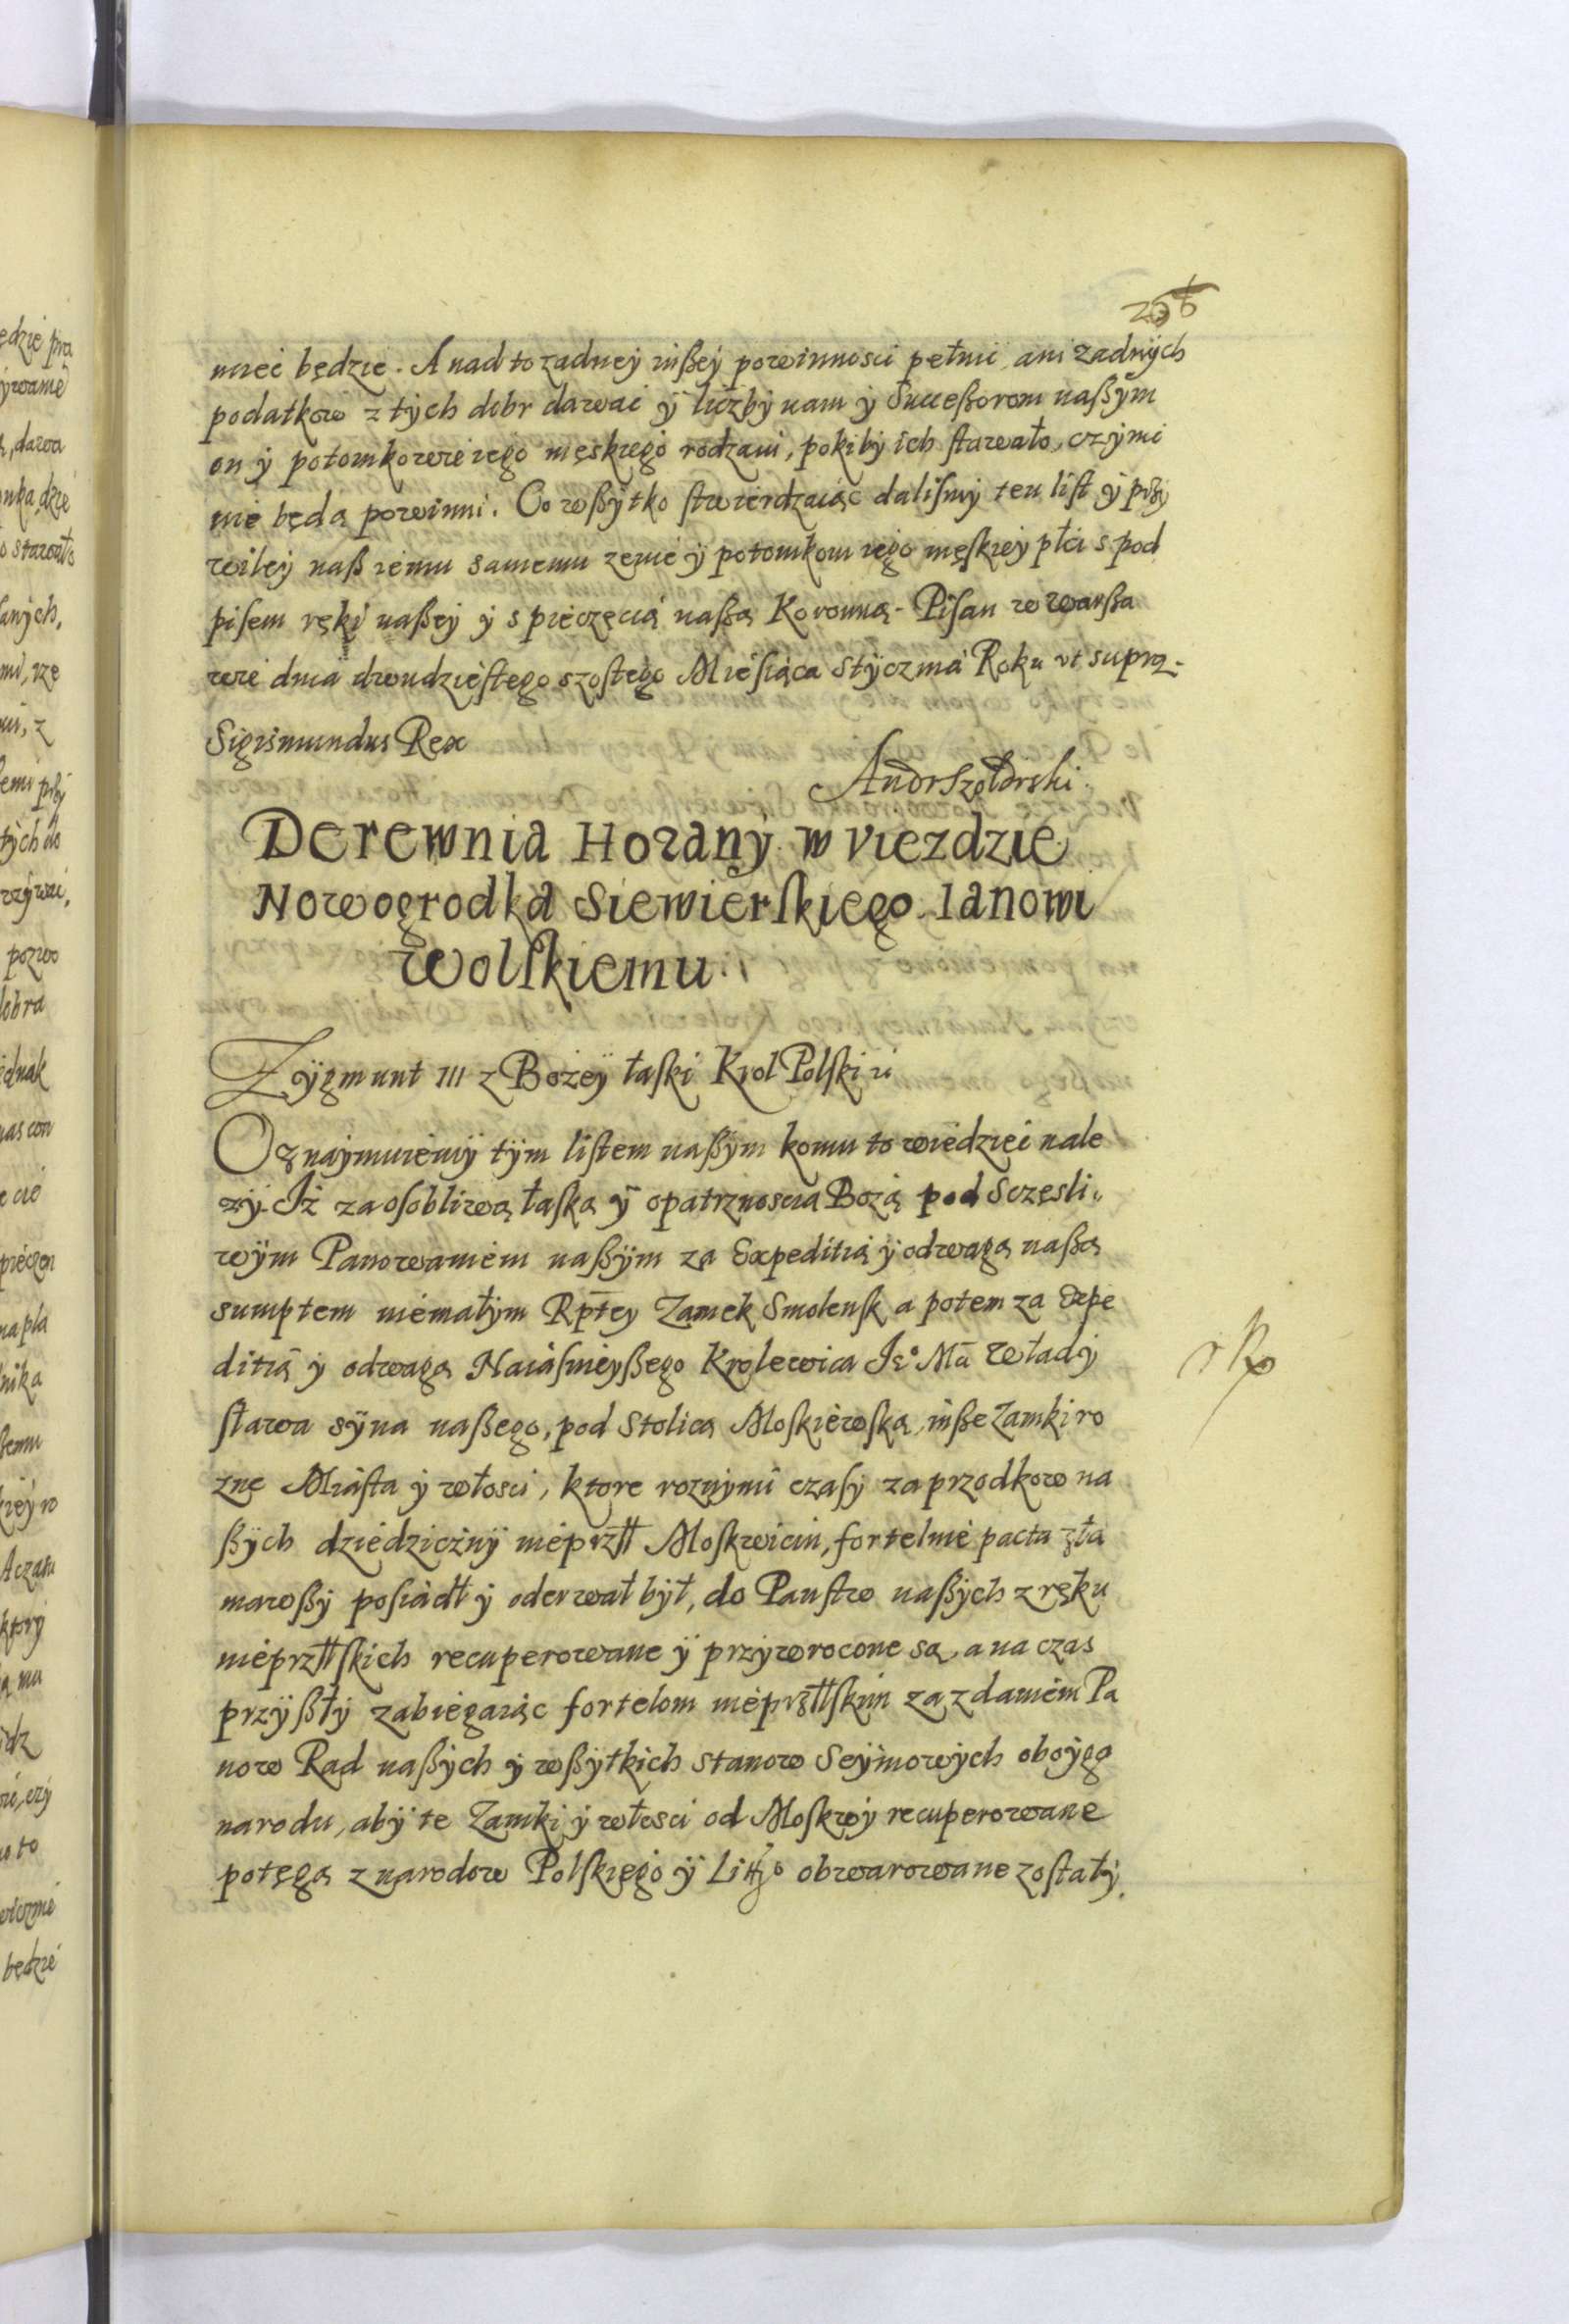 miec będzie. A nad to zadney inßey powinnosci pełnic ani zadnych
podatkow z tych dobr dawac y liczby nam y Successorom naßym
on y potomkowie iego męskiego rodzaiu, poki by ich stawało, czynic
nie będą powinni. Co wßytko stwierdzaiąc dalismy ten list y przy
wiley naß iemu samemu zenie y potomkom iego męskiey płci s pod
pisem ręki naßey y s pieczęcią naßą Koronną. Pisan w Warßa
wie dnia dwudziestego szostego Miesiąca Stycznia Roku vt supra.
Sigismundus Rex
Andr Szołdrski
Derewnia Horany w viezdzie
Nowogrodka Siewierskiego Ianowi
Wolskiemu.
Zygmunt III z Bożey łaski Krol Polski
Oznaymuiemy tym listem naßym komu to wiedziec nale
zy. Iż za osobliwą łaską y opatrznoscia Bożą pod Sczęsli
wym Panowaniem naßym za Expeditią y odwagą naßą
sumptem niemałym Rptey Zamek Smolensk a potem za Expe
ditią y odwagą Naiasnieyßego Krolewica Je° Mci Włady
sława syna naßego, pod Stolicą Moskiewską, inße Zamki ro
zne Miasta y włosci, ktore roznymi czasy za przodkow na
ßych dziedziczny nieprztl Moskwicin, fortelnie pacta zła
mawßy posiadł y oderwał był, do Panstw naßych z ręku
nieprztlskich recuperowane y przywrocone są, a na czas
przyßły zabiegaiąc fortelom nieprztlskim za zdaniem Pa
now Rad naßych y wßytkich stanow Seymowych oboyga
narodu, aby te Zamki y włosci od Moskwy recuperowane
potęgą z narodow Polskiego y Litt° obwarowane zostały.